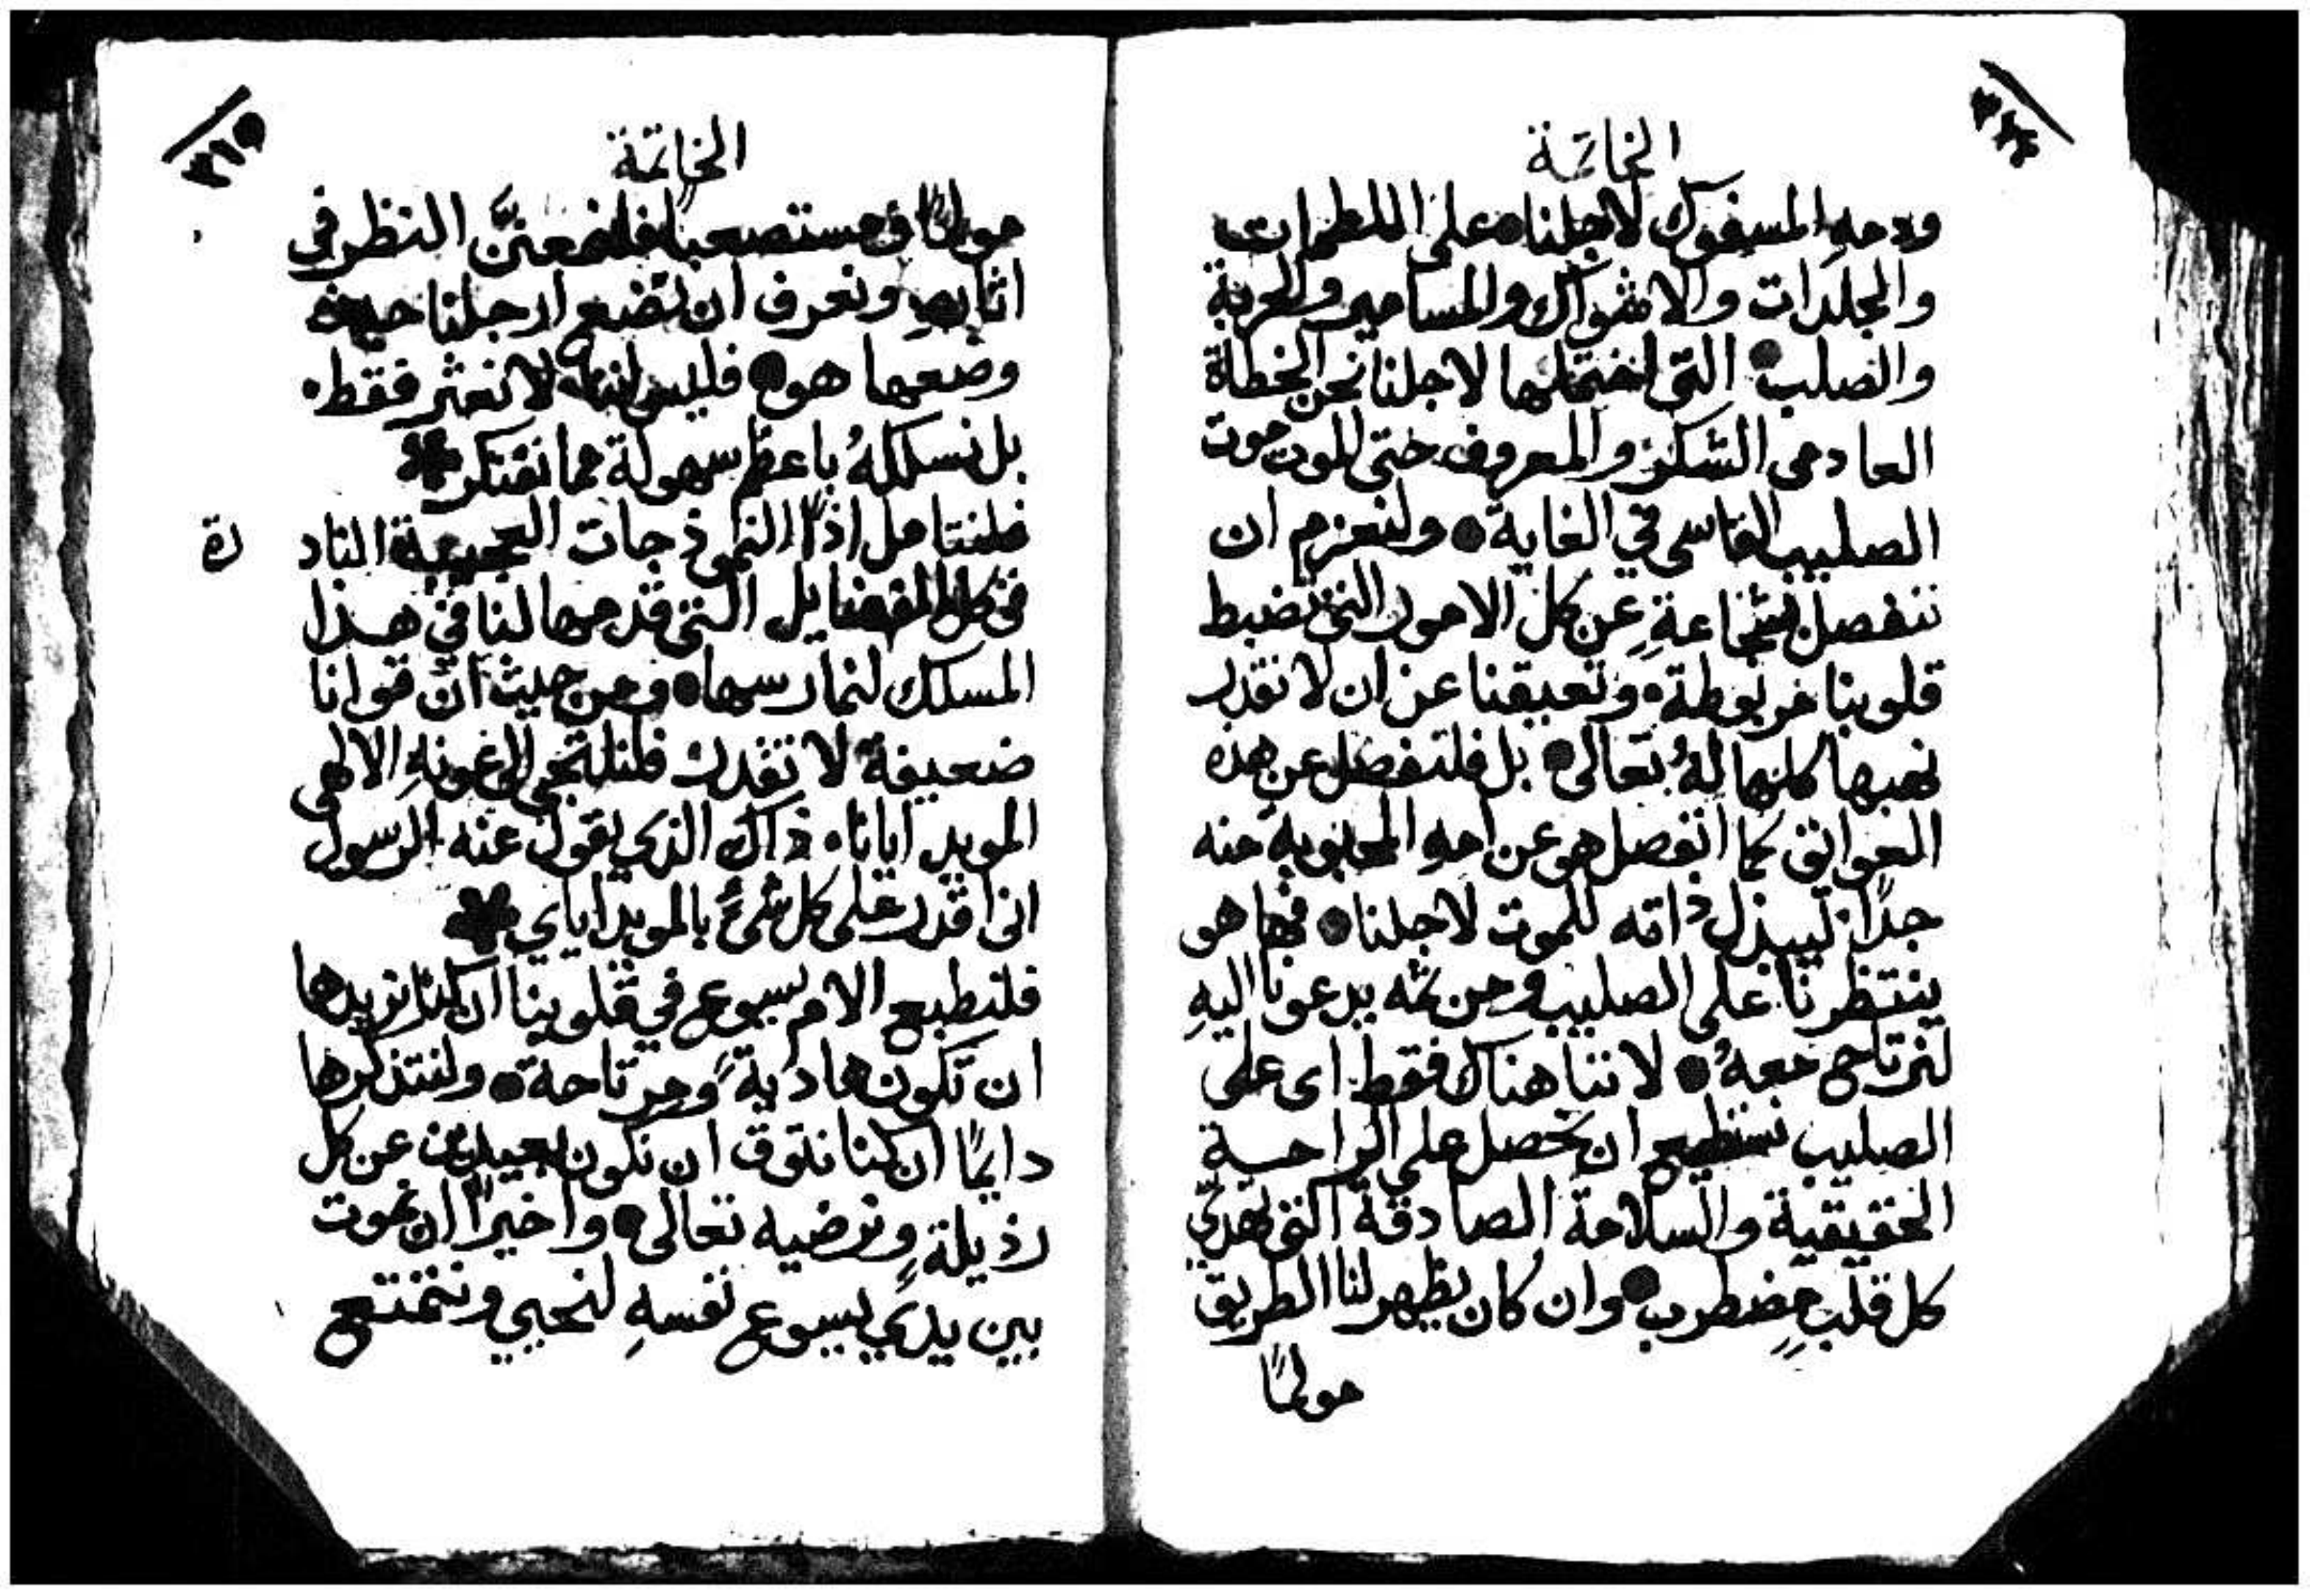 الخاتمة
ودمهِ المسفوك لاجلنا على اللطمات
والجلدات والاشواك والمسامير والحربة
والصلب التى احتملها لاجلنا نحن الخطاة
العادمى الشكر والمعروف حتى للموت موت
الصليب القاسى في الغاية ولنعزم ان
ننفصل بشجاعةٍ عن كل الامور التى تضبط
قلوبنا مربوطة وتعيقنا عن ان لا نقدر
نهبها كلها لهُ تعالى بل فلننفصل عن هذه
العوايق كما انفصل هو عن امهِ المحبوبة منه
جدًا ليبذل ذاته للموت لاجلنا فها هو
ينتظرنا على الصليب ومن ثمه يدعونا اليهِ
لنرتاح معهُ لاننا هناك فقط اى على
الصليب نستطيع ان نحصل على الراحـة
الحقيقية والسلامة الصادقة التى تهدّي
كل قلبٍ مضطربٍ وان كان يظهر لنا الطريق
مولمًا
٣٦٥
الخاتمة
مولمًا ومستصعبًا فلنمعننَّ النظر فى
اثارهِ ونعرف ان نضع ارجلنا حيث
وضعها هو فليس اننا لا نعثر فقط
بل نسلكهُ باعظم سهولة مما نفتكر
فلنتامل اذًا النموذجات العجيبة الناد
رة
فى كل الفضايل التى قدمها لنا في هـذا
المسلك لنمارسها ومن حيث ان قوانا
ضعيفة لا تقدر فلنلتجى الى عونهِ الالهى
المويد ايانا ذاك الذي يقول عنه الرسول
انى اقدر على كل شىءٍ بالمويد اياي
فلنطبع الام يسوع في قلوبنا ان كنا نريدها
ان تكون هاديةً ومرتاحة ولنتذكرها
دايمًا ان كنا نتوق ان نكون بعيدين عن كل
رذيلةٍ ونرضيه تعالى واخيرًا ان نموت
بين يدي يسوع نفسهِ لنحيي ونتمتع